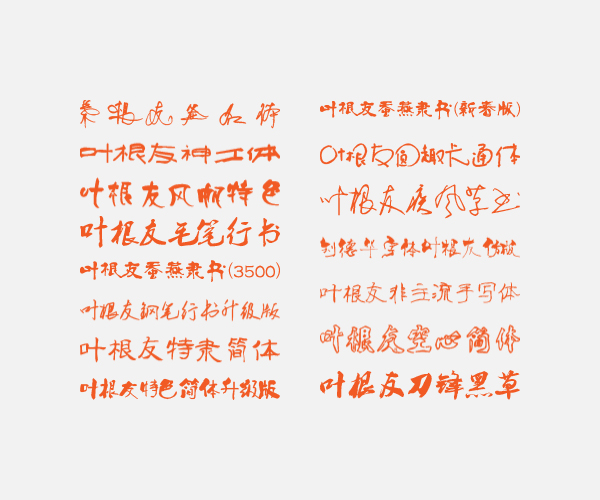 叶根友神工体
叶根友风帆特色
叶根友毛笔行书
叶根友蚕燕隶书(3500)
叶根友钢笔行书升级版
叶根友特隶简体
叶根友特色简体升级版
叶根友蚕燕隶书(新春版)
叶根友圆趣卡通体
叶根友疾风草书
刘德华字体叶根友仿版
叶根友非主流手写体
叶根友空心简体
叶根友刀锋黑草